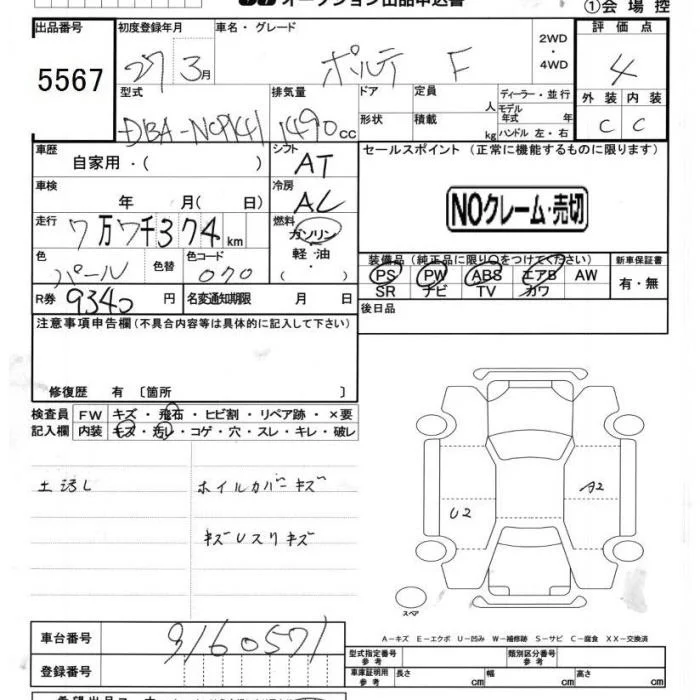 オークション出品申込書
①会場控
出品番号 初度登録年月 車名・グレード 評価点
5567 27 3月 ポルテ F 2WD・4WD 4
型式 排気量 ドア 定員 人 ディーラー・並行 外装 内装
モデル年式 年
DBA-NCP141 1490cc 形状 積載 kg ハンドル 左・右 C C
車歴 自家用・( ) シフト AT セールスポイント (正常に機能するものに限ります)
車検 年 月( 日) 冷房 AC
NOクレーム・売切
走行 7万7千374km 燃料 ガソリン 軽・油 ( ・ )
色 パール 色替 色コード 070
装備品 (純正品に限り○をつけてください) 新車保証書
PS PW ABS エアB AW 有・無
SR ナビ TV カワ
R券 9340円 名変通知期限 月 日
後日品
注意事項申告欄 (不具合内容等は具体的に記入して下さい)
修復歴 有 〔箇所 〕
検査員 FW キズ・飛石・ヒビ割・リペア跡・×要
記入欄 内装 キズ・汚レ・コゲ・穴・スレ・キレ・破レ
土汚し ホイルカバーキズ
A2
U2
スペア
A-キズ E-エクボ U-凹み W-補修跡 S-サビ C-腐食 XX-交換済
車台番号 9160571
型式指定番号 参考 類別区分番号 参考
登録番号
車庫証明用 参考 長さ cm 幅 cm 高さ cm